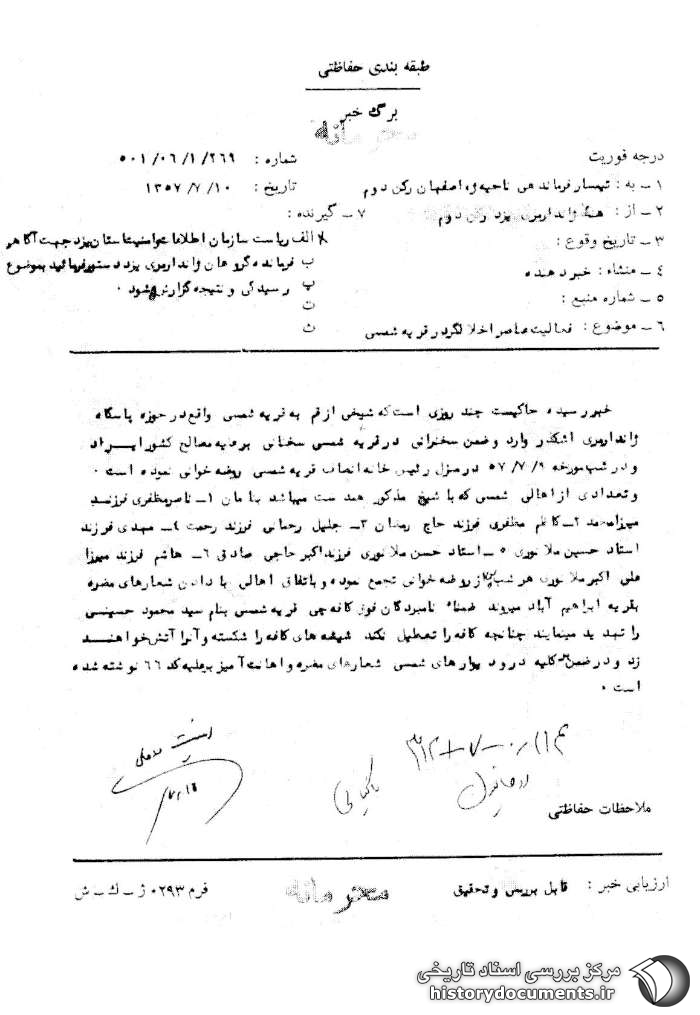 طبقه بندی حفاظتی
برگ خبر
محرمانه
درجه فوریت
شماره : ۵۰۱/۰۶/۱/۲۶۹
۱ـ به : تیمسار فرماندهی ناحیه ژ اصفهان رکن دوم
تاریخ : ۱۳۵۷/۷/۱۰
۲ـ از : هنگ ژاندارمری یزد رکن دوم
۷ـ گیرنده :
۳ـ تاریخ وقوع :
الف ریاست سازمان اطلاعات و امنیت استان یزد جهت آگاهی
۴ـ منشاء : خبر دهنده
ب فرمانده گروهان ژاندارمری یزد دستور فرمائید بموضوع
۵ـ شماره منبع :
پ رسیدگی و نتیجه گزارش شود .
ت
۶ـ موضوع : فعالیت عناصر اخلالگر در قریه شمسی
ث
خبر رسیده حاکیست چند روزی است که شیخی از قم به قریه شمسی واقع در حوزه پاسگاه
ژاندارمری اشکذر وارد و ضمن سخنرانی در قریه شمسی سخنانی بر علیه مصالح کشور ایراد
و در شب مورخه ۵۷/۷/۹ در منزل رئیس خانه انصاف قریه شمسی روضه خوانی نموده است .
و تعدادی از اهالی شمسی که با شیخ مذکور همدست میباشد بنامان ۱ـ ناصر مظفری فرزند
میرزا محمد ۲ـ کاظم مظفری فرزند حاج رمضان ۳ـ جلیل رحمانی فرزند رحمت ۴ـ مهدی فرزند
استاد حسین ملا نوری ۵ـ استاد حسن ملا نوری فرزند اکبر حاجی صادقی ۶ـ هاشم فرزند میرزا
علی اکبر ملا نوری هر شب پس از روضه خوانی تجمع نموده و باتفاق اهالی با دادن شعارهای مضره
بقریه ابراهیم آباد میروند ضمناً نامبردگان فوق کافه چی قریه شمسی بنام سید محمود حسینی
را تهدید مینمایند چنانچه کافه را تعطیل نکند شیشه های کافه را شکسته و آنرا آتش خواهند
زد و در ضمن بر کلیه در و دیوارهای شمسی شعارهای مضره و اهانت آمیز بر علیه کد ۶۶ نوشته شده
است .
ملاحظات حفاظتی
ارزیابی خبر : قابل بررسی و تحقیق
محرمانه
فرم ۰۲۹۳ ژ ـ ک ـ ش
مرکز بررسی اسناد تاریخی
historydocuments.ir